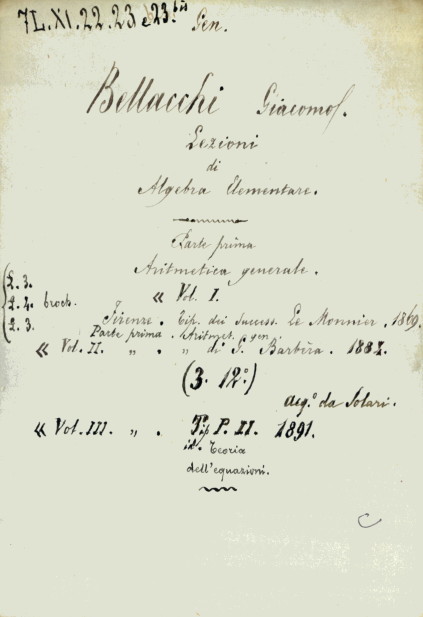 7L.XI.22.23 e 23.bis Gen.
Bellacchi Giacomo.
Lezioni
di
Algebra Elementare.
Parte prima
Aritmetica generale.
L. 3. « Vol. I.
L. 4. broch.
L. 3. Firenze. Tip. dei Success. Le Monnier. 1869.
Parte prima. Aritmet. gen.
« Vol. II „ . „ di G. Barbèra. 1887.
(3. 12°)
acq.° da Solari.
« Vol. III. „ . Tip P. II. 1891.
id. Teoria
dell'equazioni.
C